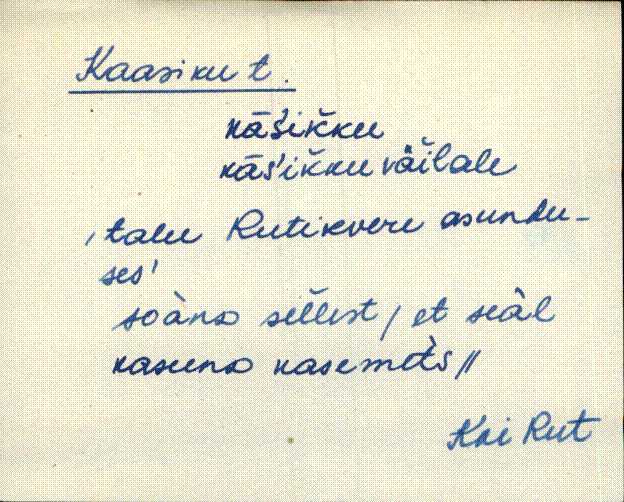 Kaasiku t.
kāšikku
kās'ikku väilale
'talu Rutikvere asundu-
ses'
soànᴅ sellest / et seàl
kasunᴅ kasemets //
Koi Rut